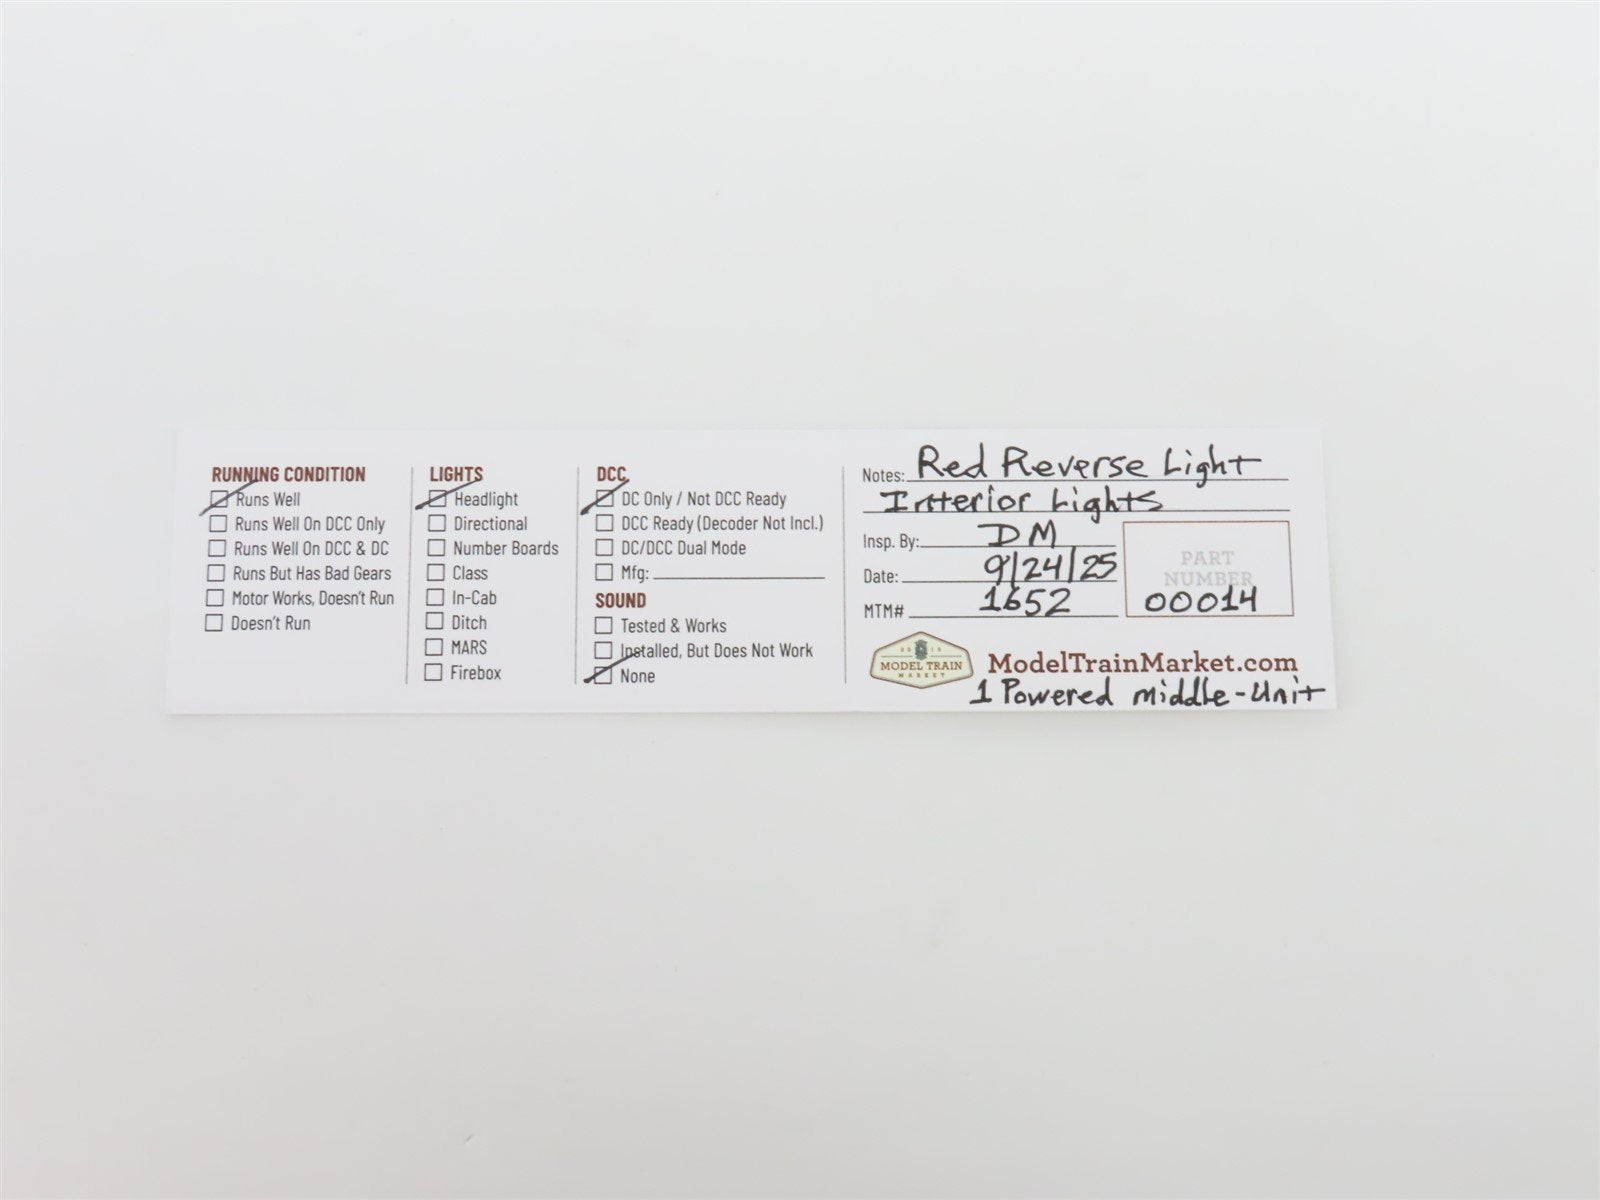 RUNNING CONDITION
Runs Well
Runs Well On DCC Only
Runs Well On DCC & DC
Runs But Has Bad Gears
Motor Works, Doesn't Run
Doesn't Run
LIGHTS
Headlight
Directional
Number Boards
Class
In-Cab
Ditch
MARS
Firebox
DCC
DC Only / Not DCC Ready
DCC Ready (Decoder Not Incl.)
DC/DCC Dual Mode
Mfg:
SOUND
Tested & Works
Installed, But Does Not Work
None
Notes: Red Reverse Light
Interior Lights
Insp. By: DM
Date: 9/24/25
MTM# 1652
PART
NUMBER
00014
2015
MODEL TRAIN
MARKET
ModelTrainMarket.com
1 Powered middle-Unit